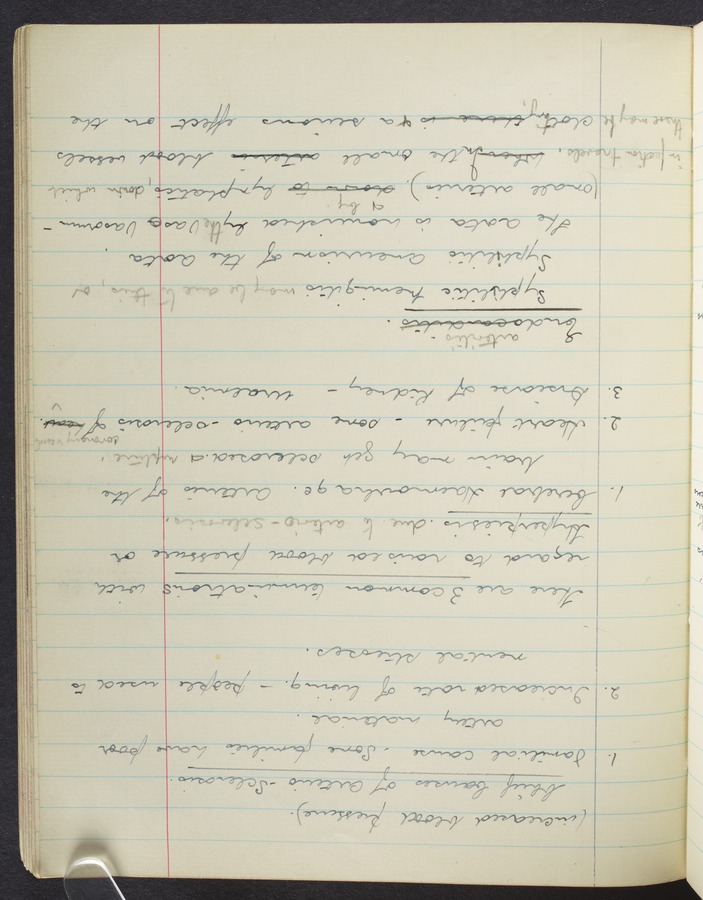 (increased blood pressure).
Chief Causes of Arterio-Sclerosis.
1. Familial cause - Some families have poor
artery material.
2. Increased rate of living. - people used to
mental stresses.
There are 3 common terminations with
regard to raised blood pressure or
Hyperpiesis. due to arterio-sclerosis.
1. Cerebral Haemorrhage. Arteries of the
brain may get sclerosed & rupture.
2. Heart failure - some arterio-sclerosis of
coronary
3. Disease of Kidney - uraemia.
arteritis.
Endocarditis.
Syphilitic meningitis may be due to this, or
Syphilitic aneurism of the aorta.
The aorta is nourished by the Vasa Vasorum -
(small arteries). & by lymphatics, down which
infection travels. In the small blood vessels
there may be clotting, & a serious effect on the